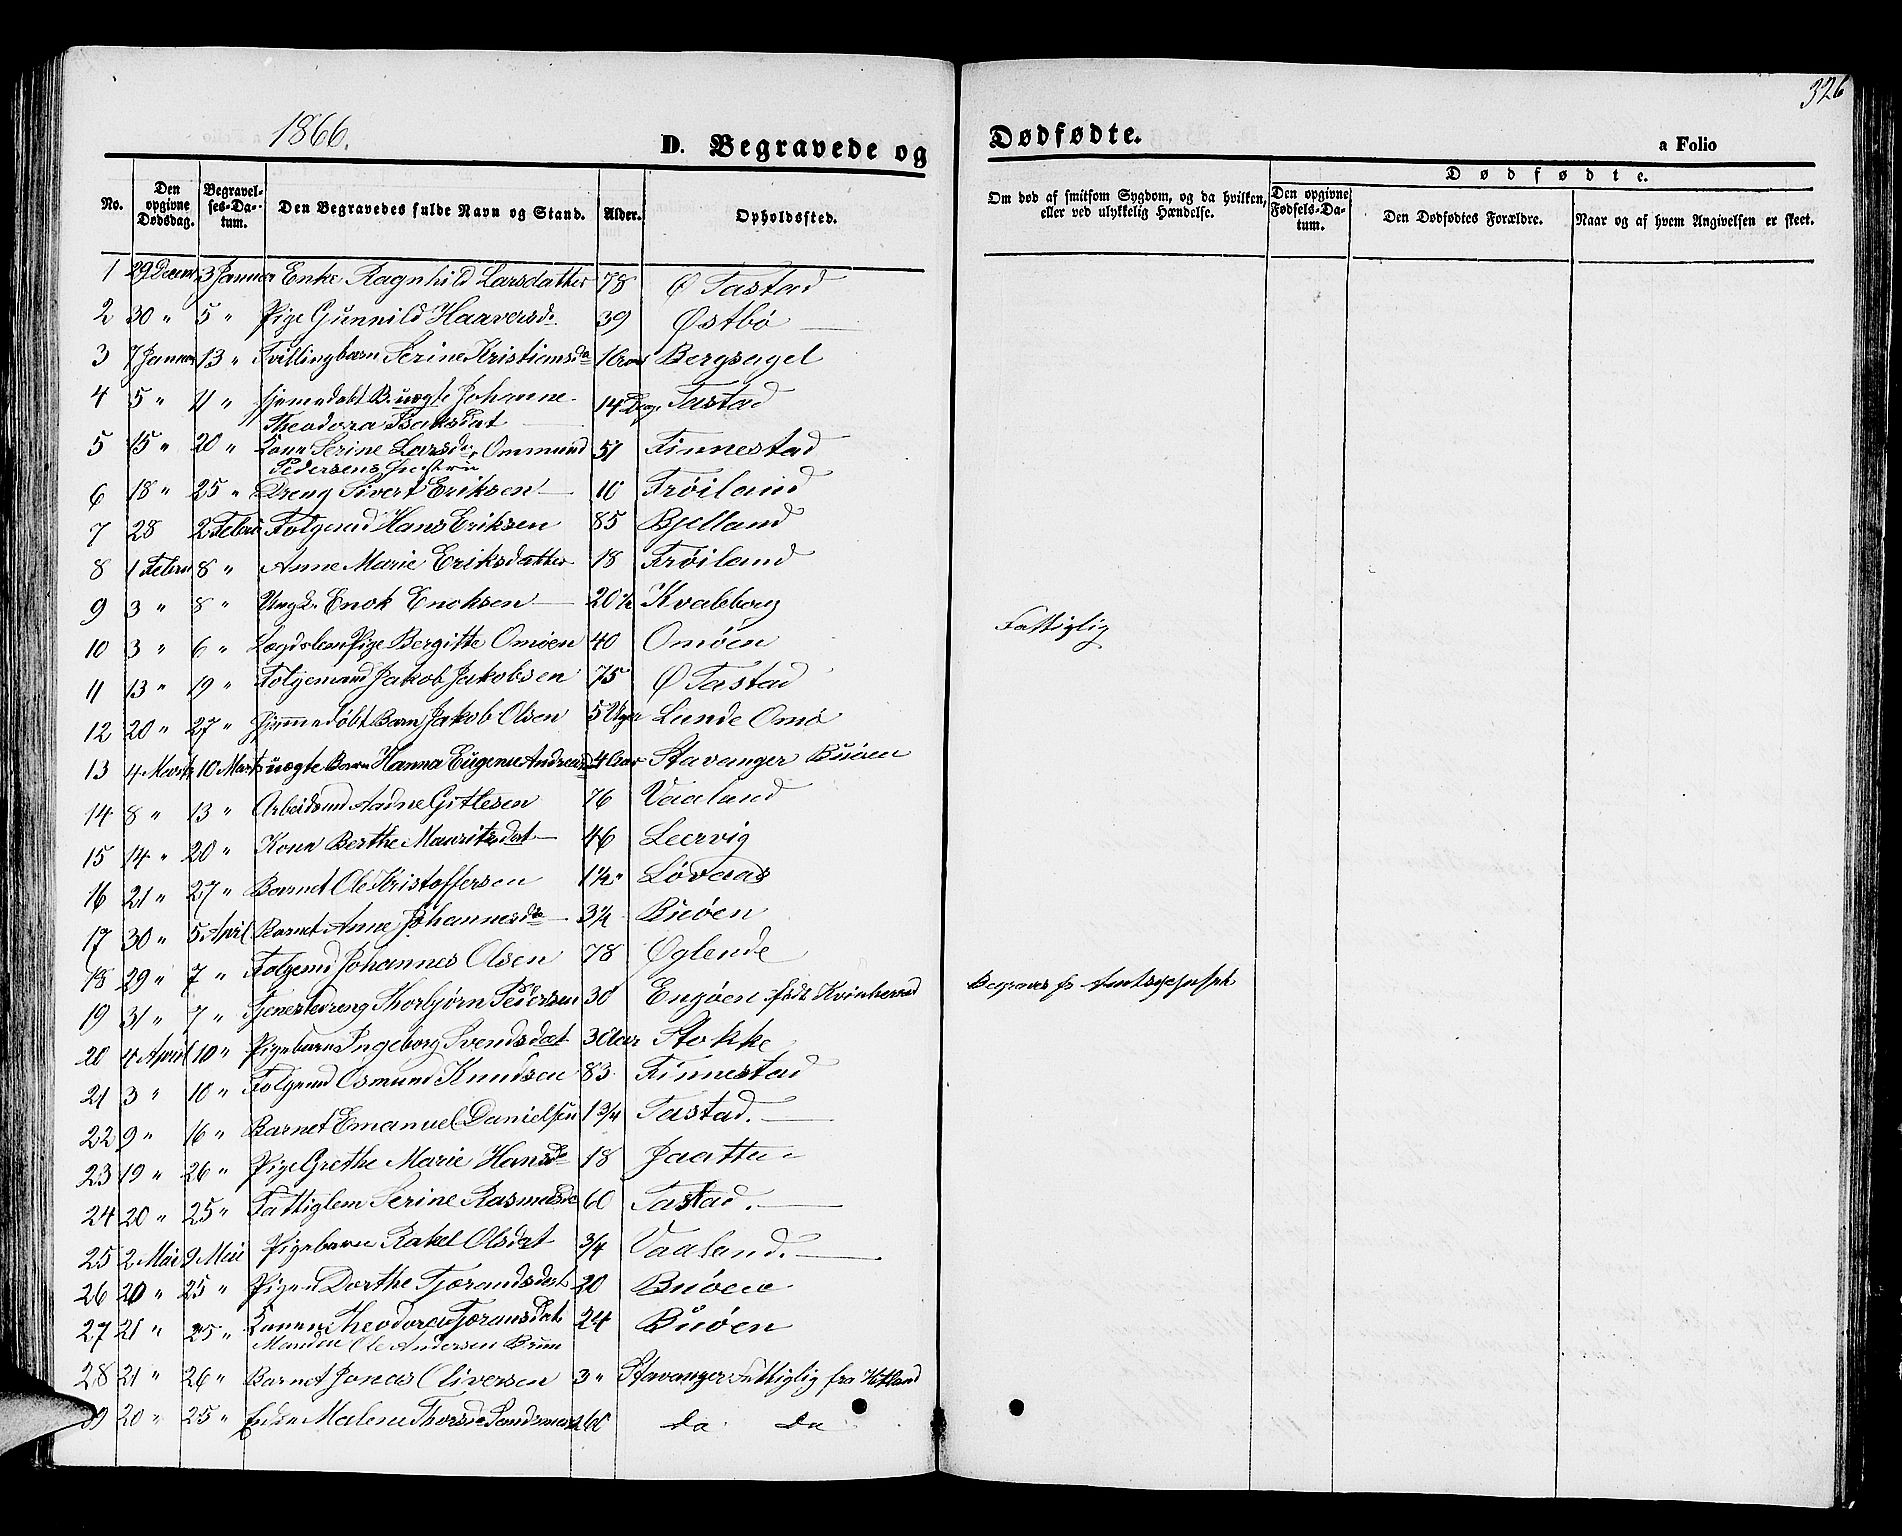 326
1866.
D. Begravede og Dødfødte.
a Folio
No. Den opgivne Dødsdag. Begravelses-Datum. Den Begravedes fulde Navn og Stand. Alder. Opholdssted. Om død af smitsom Sygdom, og da hvilken, eller ved ulykkelig Hændelse. Dødfødte. Den opgivne Fødsels-Datum. Den Dødfødtes Forældre. Naar og af hvem Angivelsen er skeet.
1 29 Decem 3 Januar Enke Ragnhild Larsdatter 78 Ø Tastad
2 30 " 5 " Pige Gunnild Haaversd. 39 Østbö
3 7 Januar 13 " Tvillingbarn Serine Kristiansda Bergsagel
4 5 " 11 " hjemmedøbt B. uægte Johanne 14 Dage Tastad
Theodora Isaksdat
5 15 " 20 " Kone Serine Larsd. Ommund 51 Finnestad
Pedersens Hustru
6 18 " 25 " Dreng Sivert Eriksen 10 Frøiland
7 28 2 Febru Folgemd Hans Eriksen 85 Bjelland
8 1 Febru 8 " Anne Marie Eriksdatter 18 Frøiland
9 3 " 8 " Ungk. Enok Enoksen 20 ½ Kvaleberg
10 3 " 6 " Lægdslem Pige Bergitte Omøen 40 Omøen Fattiglig
11 13 " 19 " Folgemand Jakob Jakobsen 75 Ø Tastad
12 20 " 27 " Hjemmedøbt Barn Jakob Olsen 5 Uger Lunde Omø
13 4 Marts 10 Marts uægte Barn Hanna Eugenie Andreasd 4 Aar Stavanger Buøen
14 8 " 13 " Arbeidsmd Aadne Gitlesen 76 Vaaland
15 14 " 20 " Kone Berthe Mauritzdat 46 Leervig
16 21 " 27 " Barnet Ole Kristoffersen 1½ " Løvaas
17 30 " 5 April Barnet Anne Johannesda 3½ Buøen
18 29 " 7 " Folgemd Johannes Olsen 78 Øglende
19 31 " 7 " Tjenestedreng Thorbjørn Pedersen 30 Engøen født Kvinherred Begraves fr Amtssygehuset
20 4 April 10 " Pigebarn Ingeborg Svendsdat 3 Aar Stokke
21 3 " 10 " Folgemd Osmund Knudsen 83 Finnestad
22 9 " 16 " Barnet Emanuel Danielsen 1 3/4 Tastad.
23 19 " 26 " Pige Grethe Marie Hansda 18 Jaatten
24 20 " 25 " Fattiglem Serine Rasmusda 60 Tastad.
25 2 Mai 9 Mai Pigebarn Rakel Olsdat 3/4 Vaaland.
26 20 " 25 " Pigen Dorthe Tjørandsdat 20 Buøen
27 21 " 25 " Konen Theodora Tjøransdat 24 Buøen
Manden Ole Andersen Brun
28 21 " 26 " Barnet Jonas Oliversen 3 " Stavanger Fattiglig fra Hetland
29 20 " 25 " Enken Malene Thorsda Sandsmark 60 do do